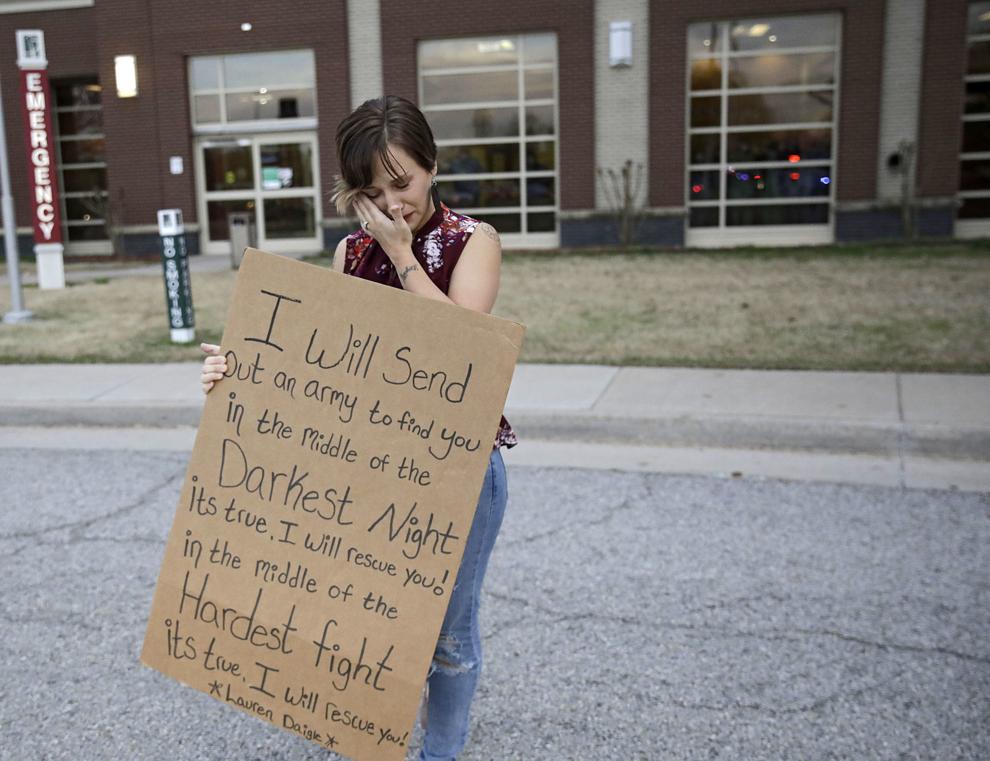 EMERGENCY
NO SMOKING
I Will Send
Out an army to find you
in the middle of the
Darkest Night
its true. I will rescue you!
in the middle of the
Hardest fight
its true. I will rescue you!
*Lauren Daigle*